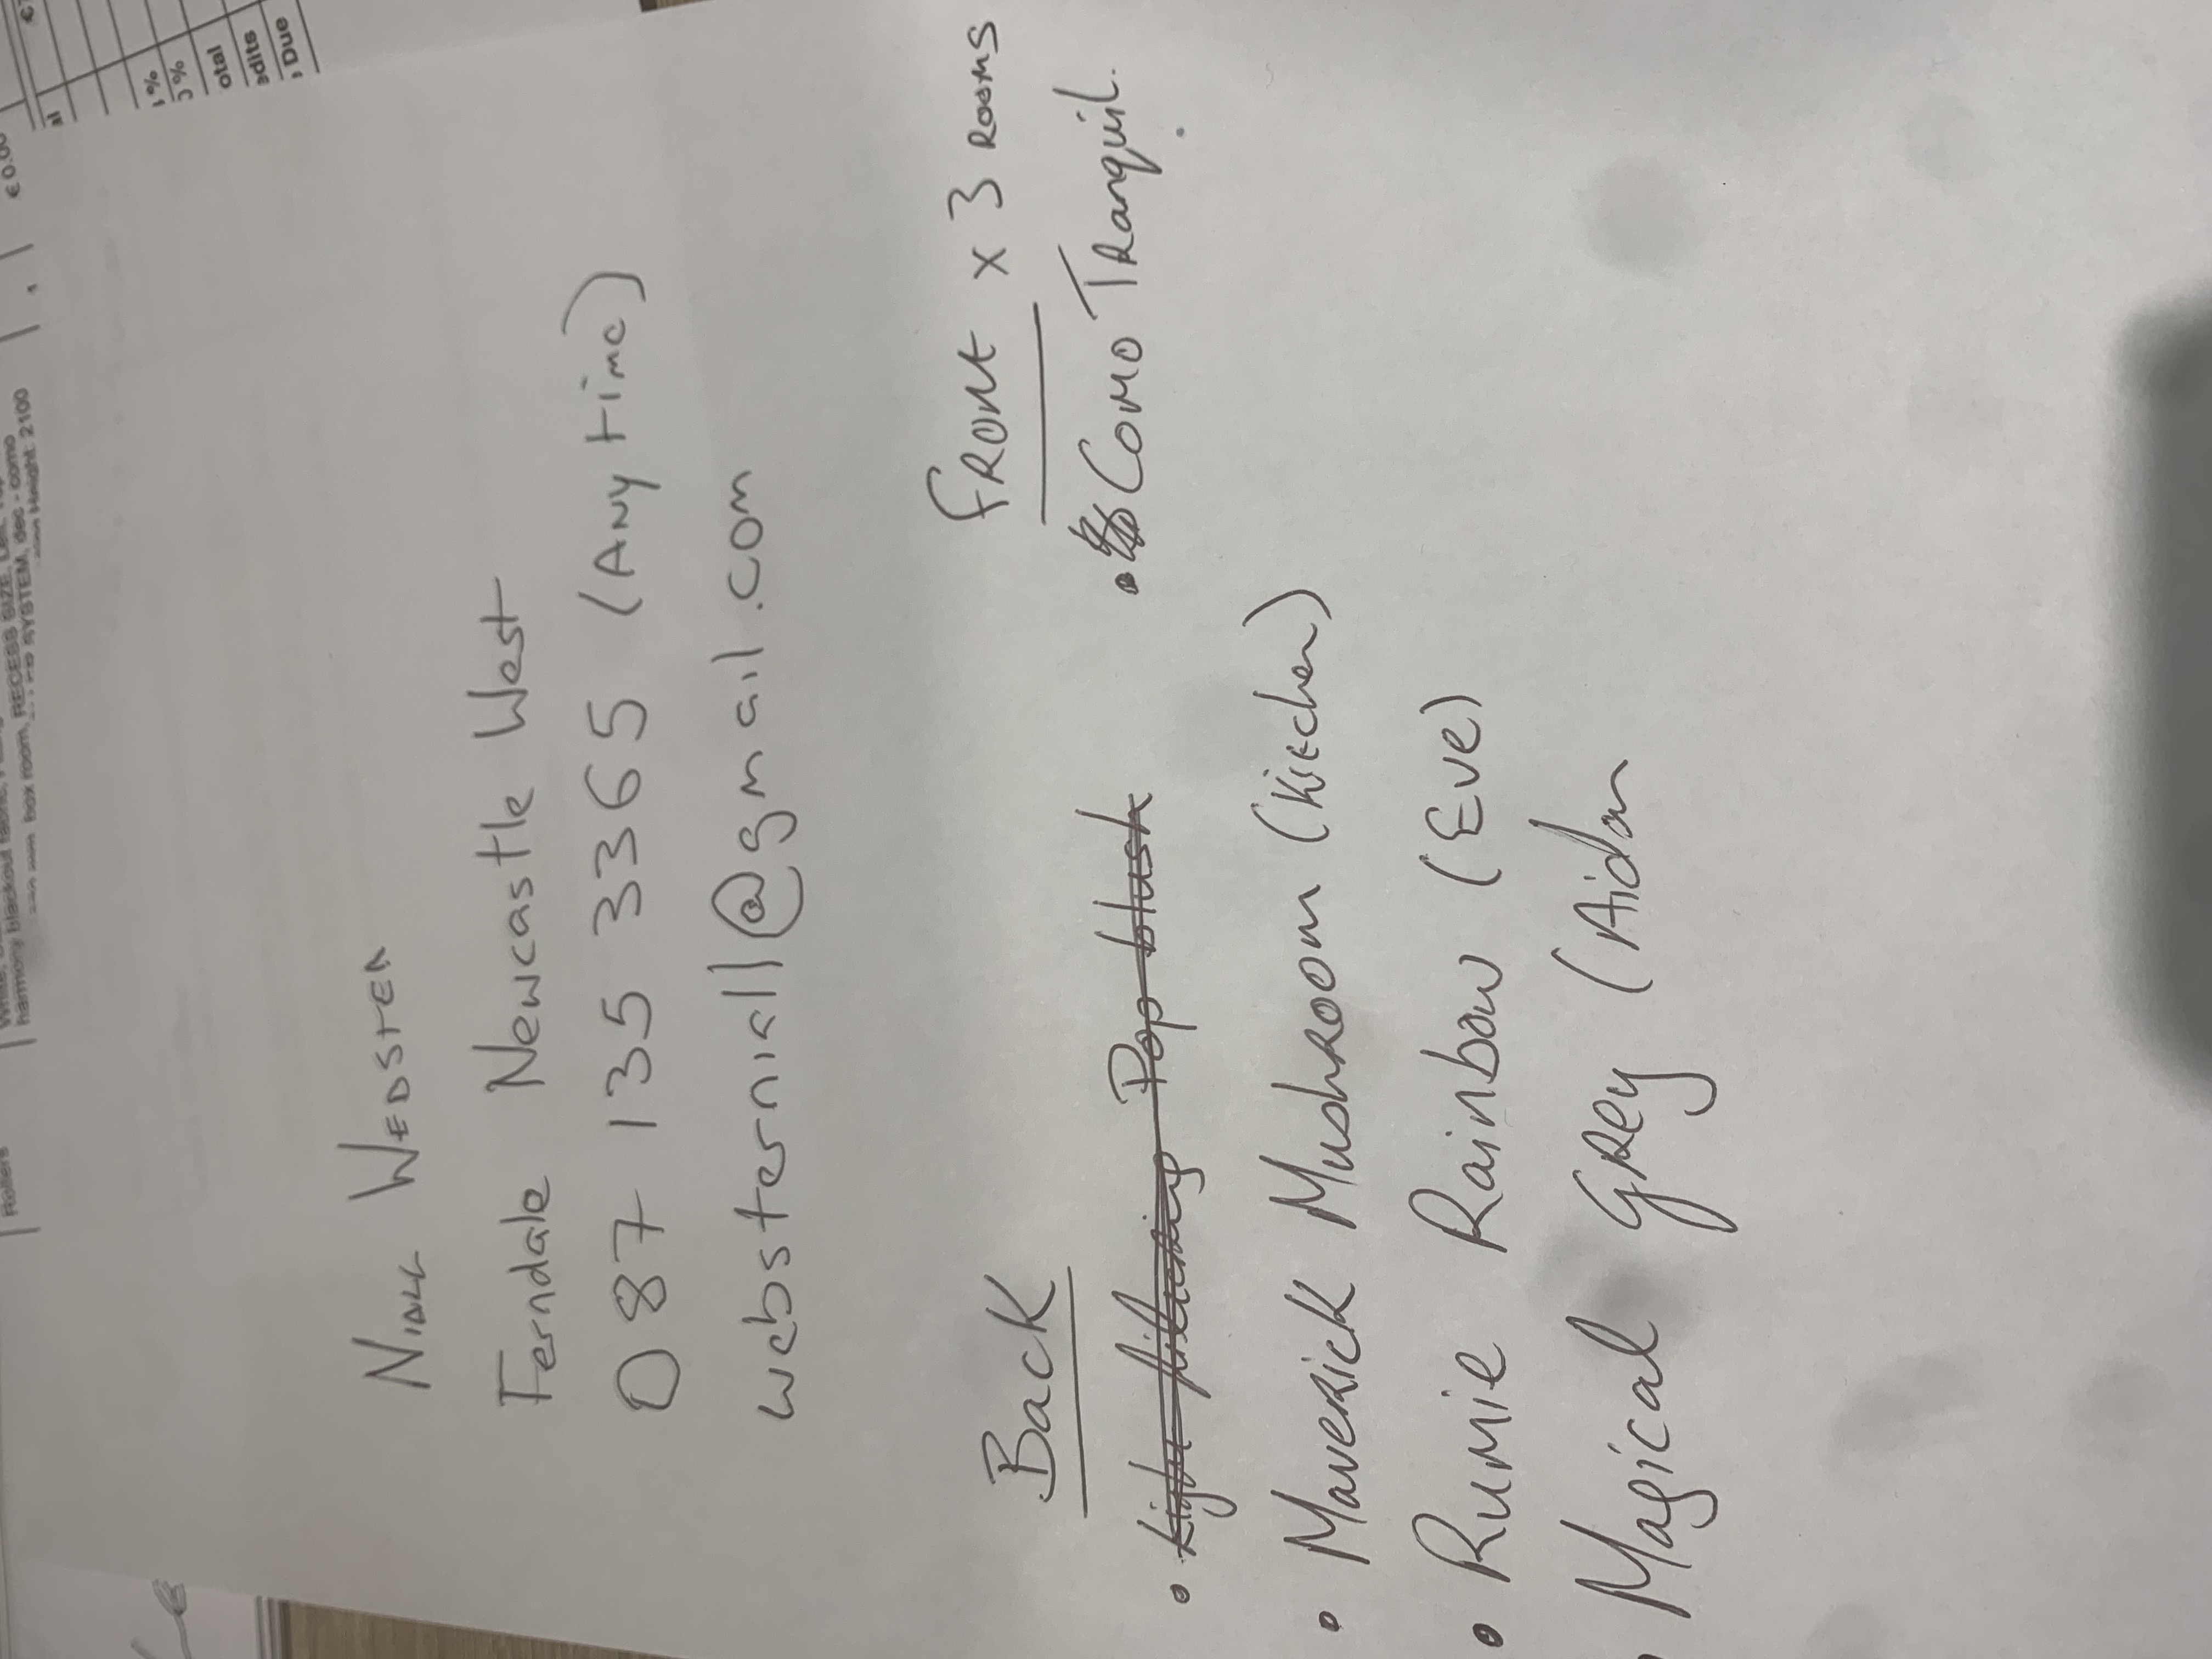 Rollers
harmony blackout fabric,
box room, RECESS SIZE,
SYSTEM, dec - como
Height: 2100
€0.00
otal
edits
Due
Niall Webster
Ferndale Newcastle West
087 135 3365 (Anytime)
websterniall@gmail.com
Back
• Light filtering Pop blush
• Maverick Mushroom (Kitchen)
• Rumie Rainbow (Eve)
• Magical Grey (Aidan
Front x 3 Rooms
• Como Tranquil.